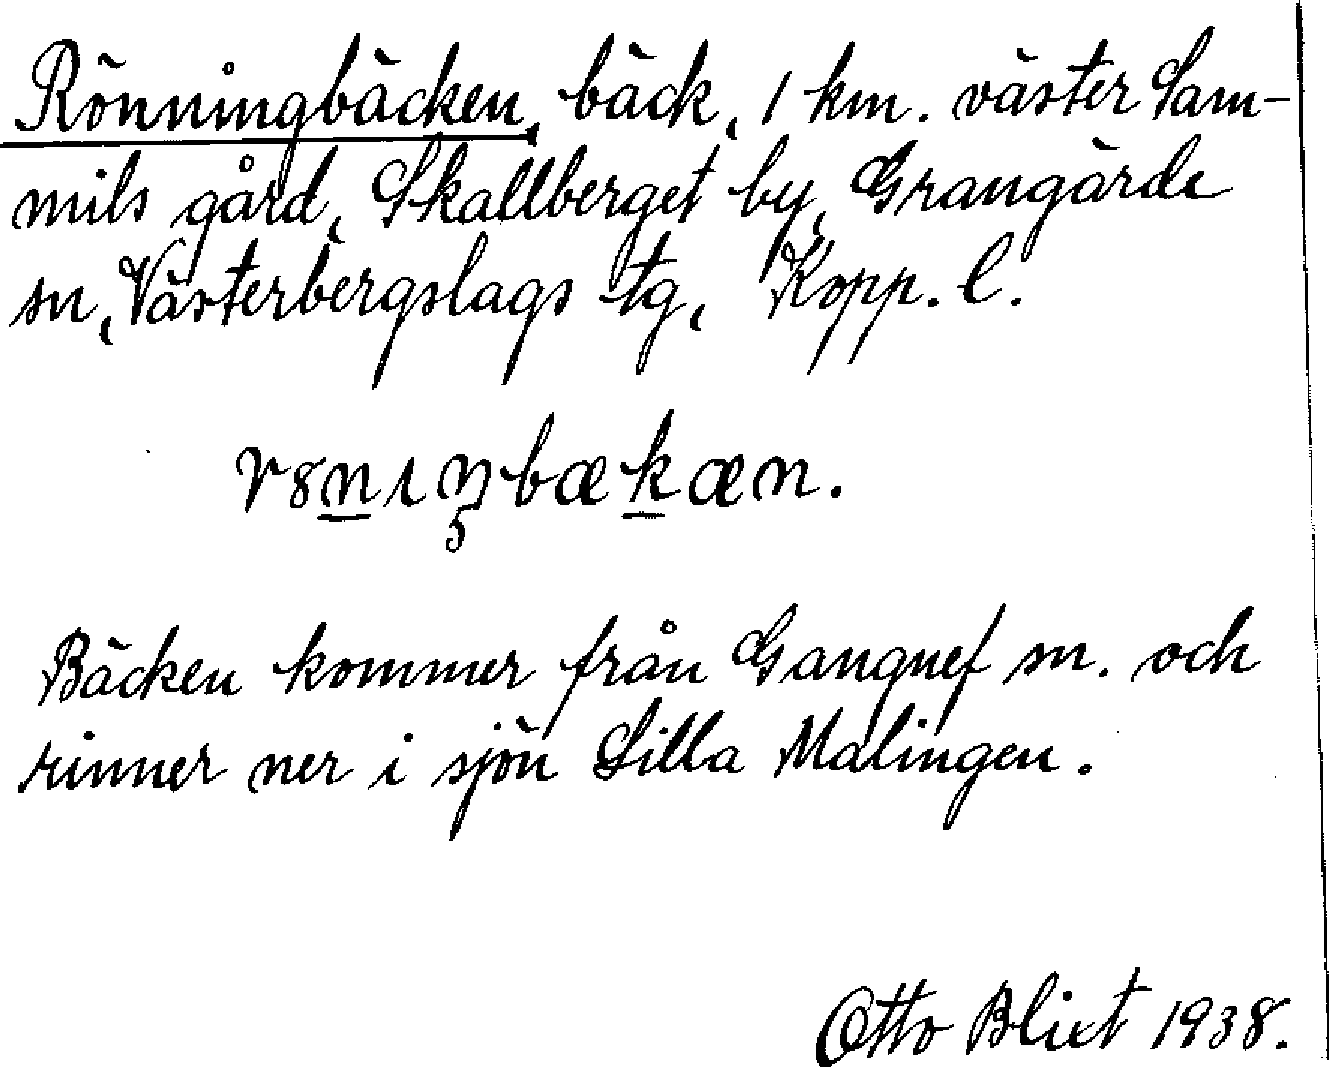 Rönningbäcken, bäck, 1 km. väster Sam-
mils gård, Skallberget by, Grangärde
sn, Västerbergslags tg, Kopp. l.
r8nıŋbækæn.
Bäcken kommer från Gangnef sn. och
rinner ner i sjön Lilla Malingen.
Otto Blixt 1938.